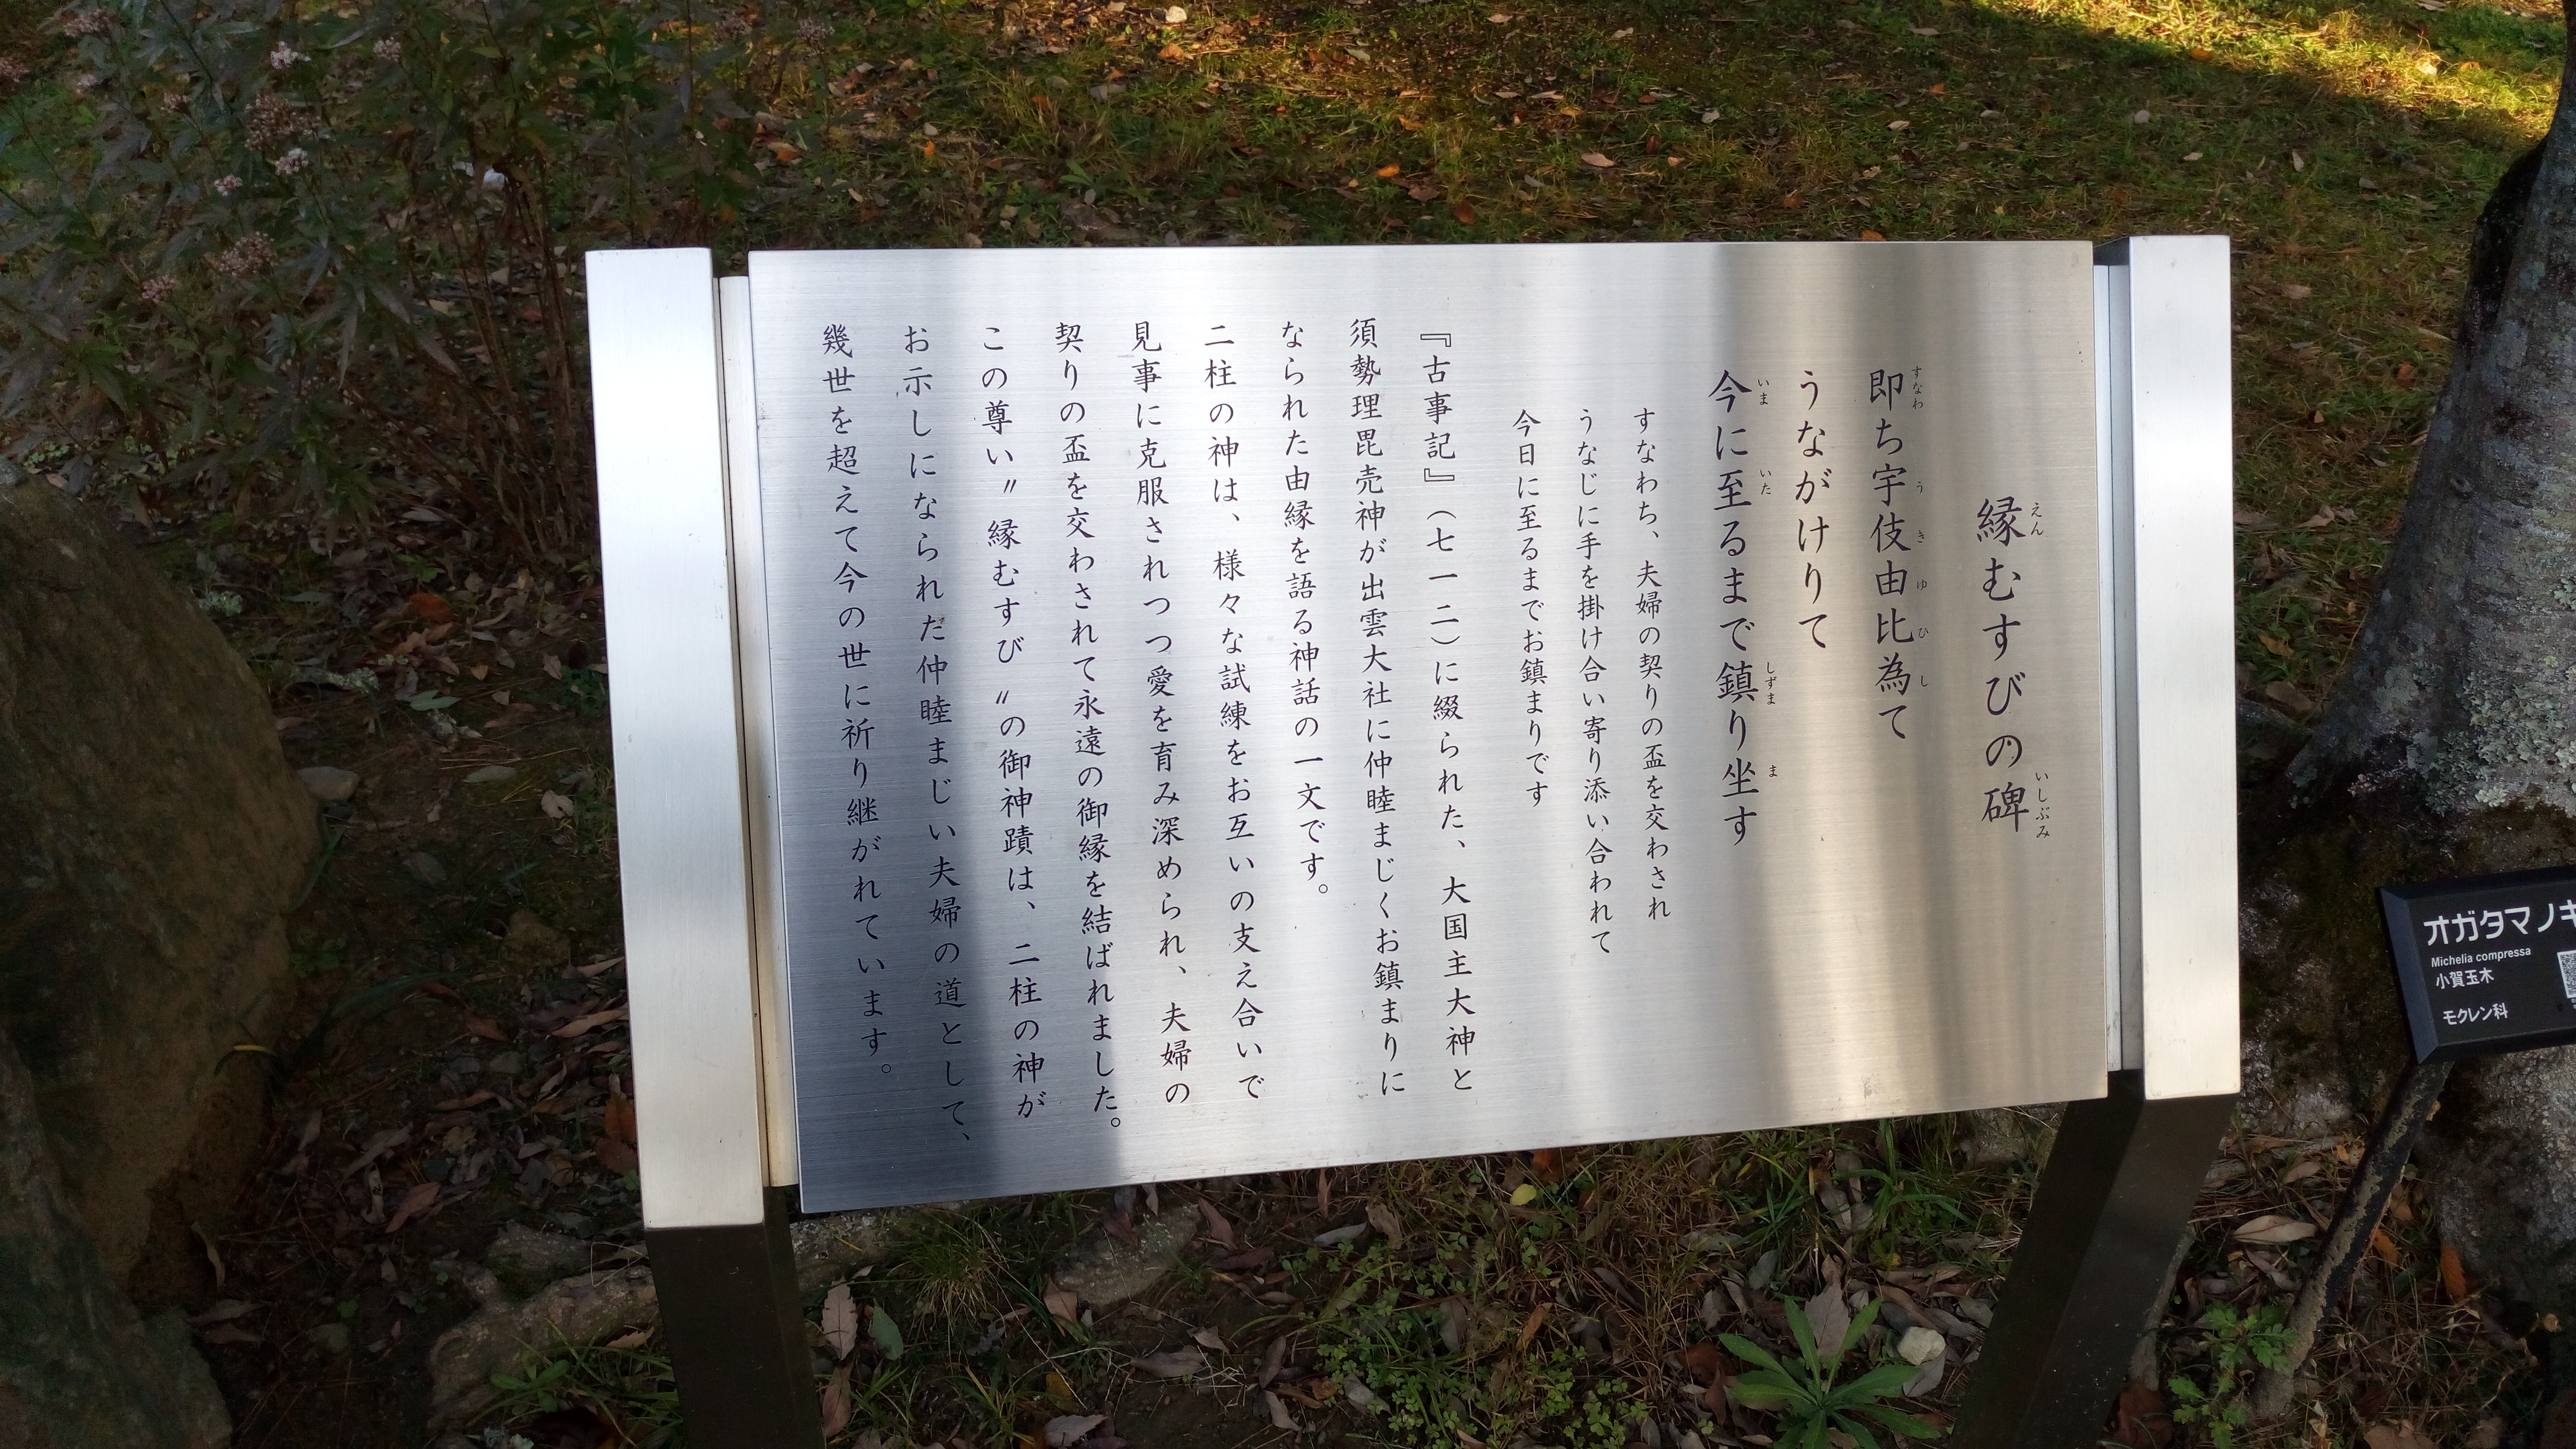 縁むすびの碑
即ち宇伎由比為て
うながけりて
今に至るまで鎮り坐す
すなわち、夫婦の契りの盃を交わされ
うなじに手を掛け合い寄り添い合われて
今日に至るまでお鎮まりです
『古事記』(七一二)に綴られた、大国主大神と
須勢理毘売神が出雲大社に仲睦まじくお鎮まりに
なられた由縁を語る神話の一文です。
二柱の神は、様々な試練をお互いの支え合いで
見事に克服されつつ愛を育み深められ、夫婦の
契りの盃を交わされて永遠の御縁を結ばれました。
この尊い〃縁むすび〃の御神蹟は、二柱の神が
お示しになられた仲睦まじい夫婦の道として、
幾世を超えて今の世に祈り継がれています。
オガタマノキ
Michelia compressa
小賀玉木
モクレン科